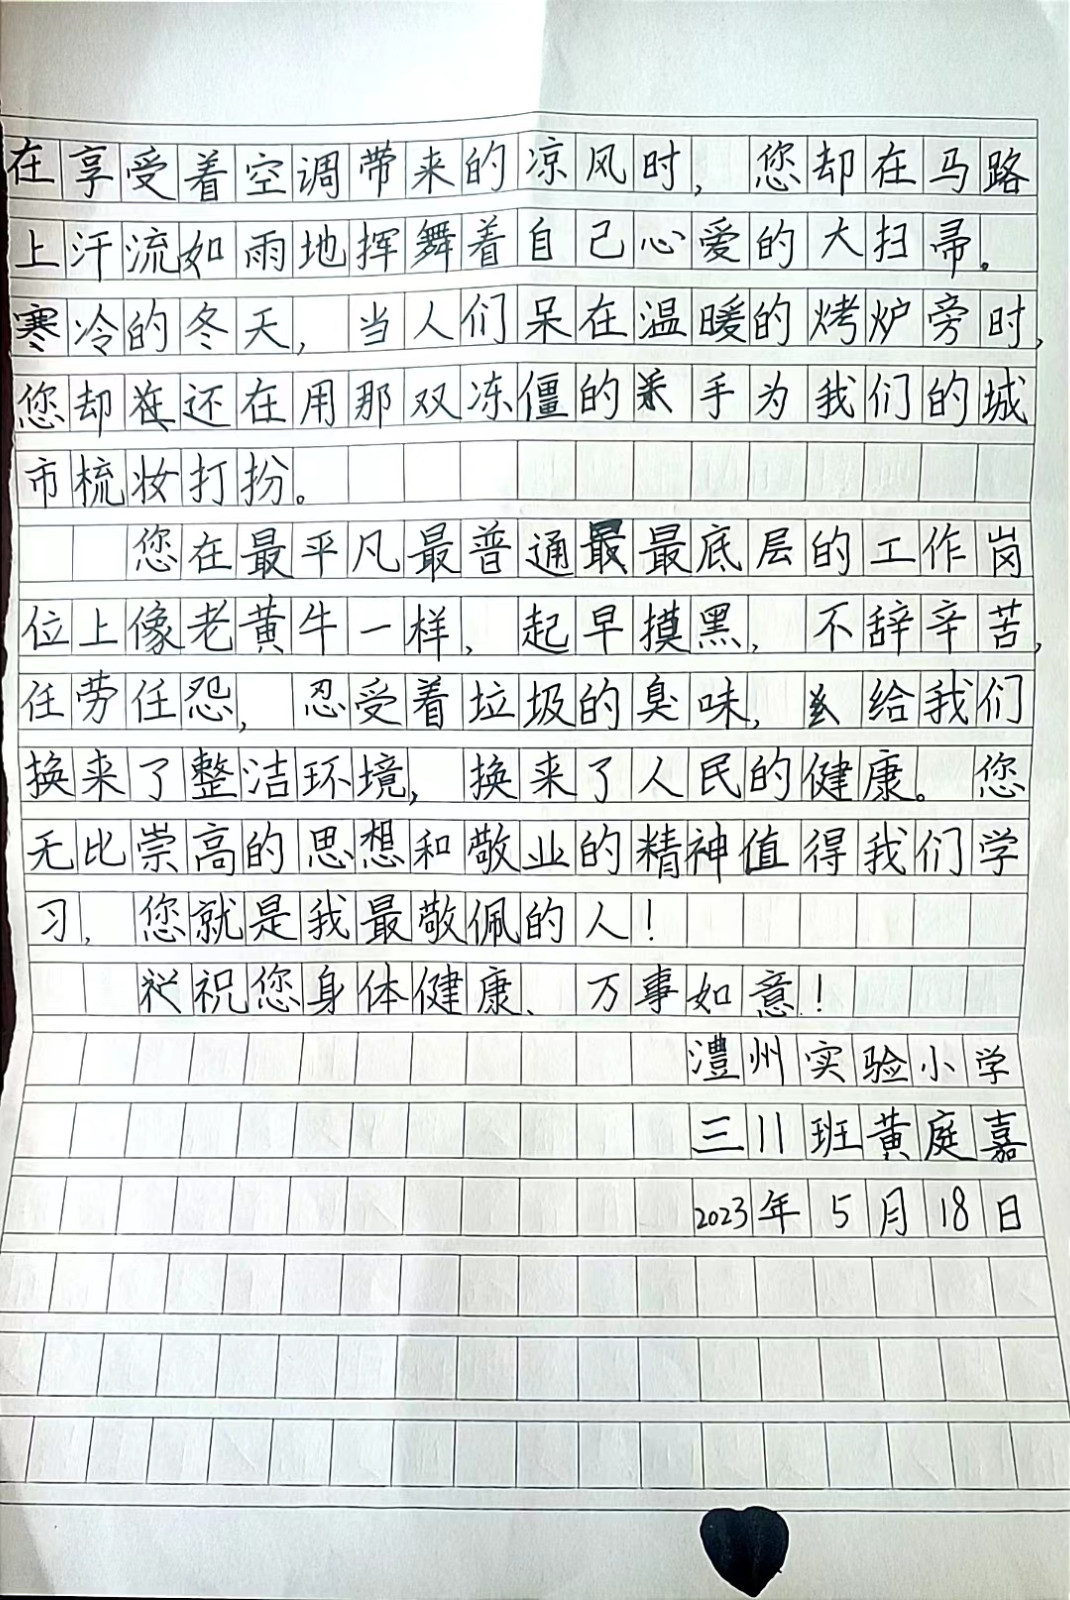 在享受着空调带来的凉风时，您却在马路
上汗流如雨地挥舞着自己心爱的大扫帚。
寒冷的冬天，当人们呆在温暖的烤炉旁时，
您却还在用那双冻僵的手为我们的城
市梳妆打扮。
您在最平凡最普通最底层的工作岗
位上像老黄牛一样，起早摸黑，不辞辛苦，
任劳任怨，忍受着垃圾的臭味，给我们
换来了整洁环境，换来了人民的健康。您
无比崇高的思想和敬业的精神值得我们学
习，您就是我最敬佩的人！
祝您身体健康、万事如意！
澧州实验小学
三11班黄庭嘉
2023年5月18日